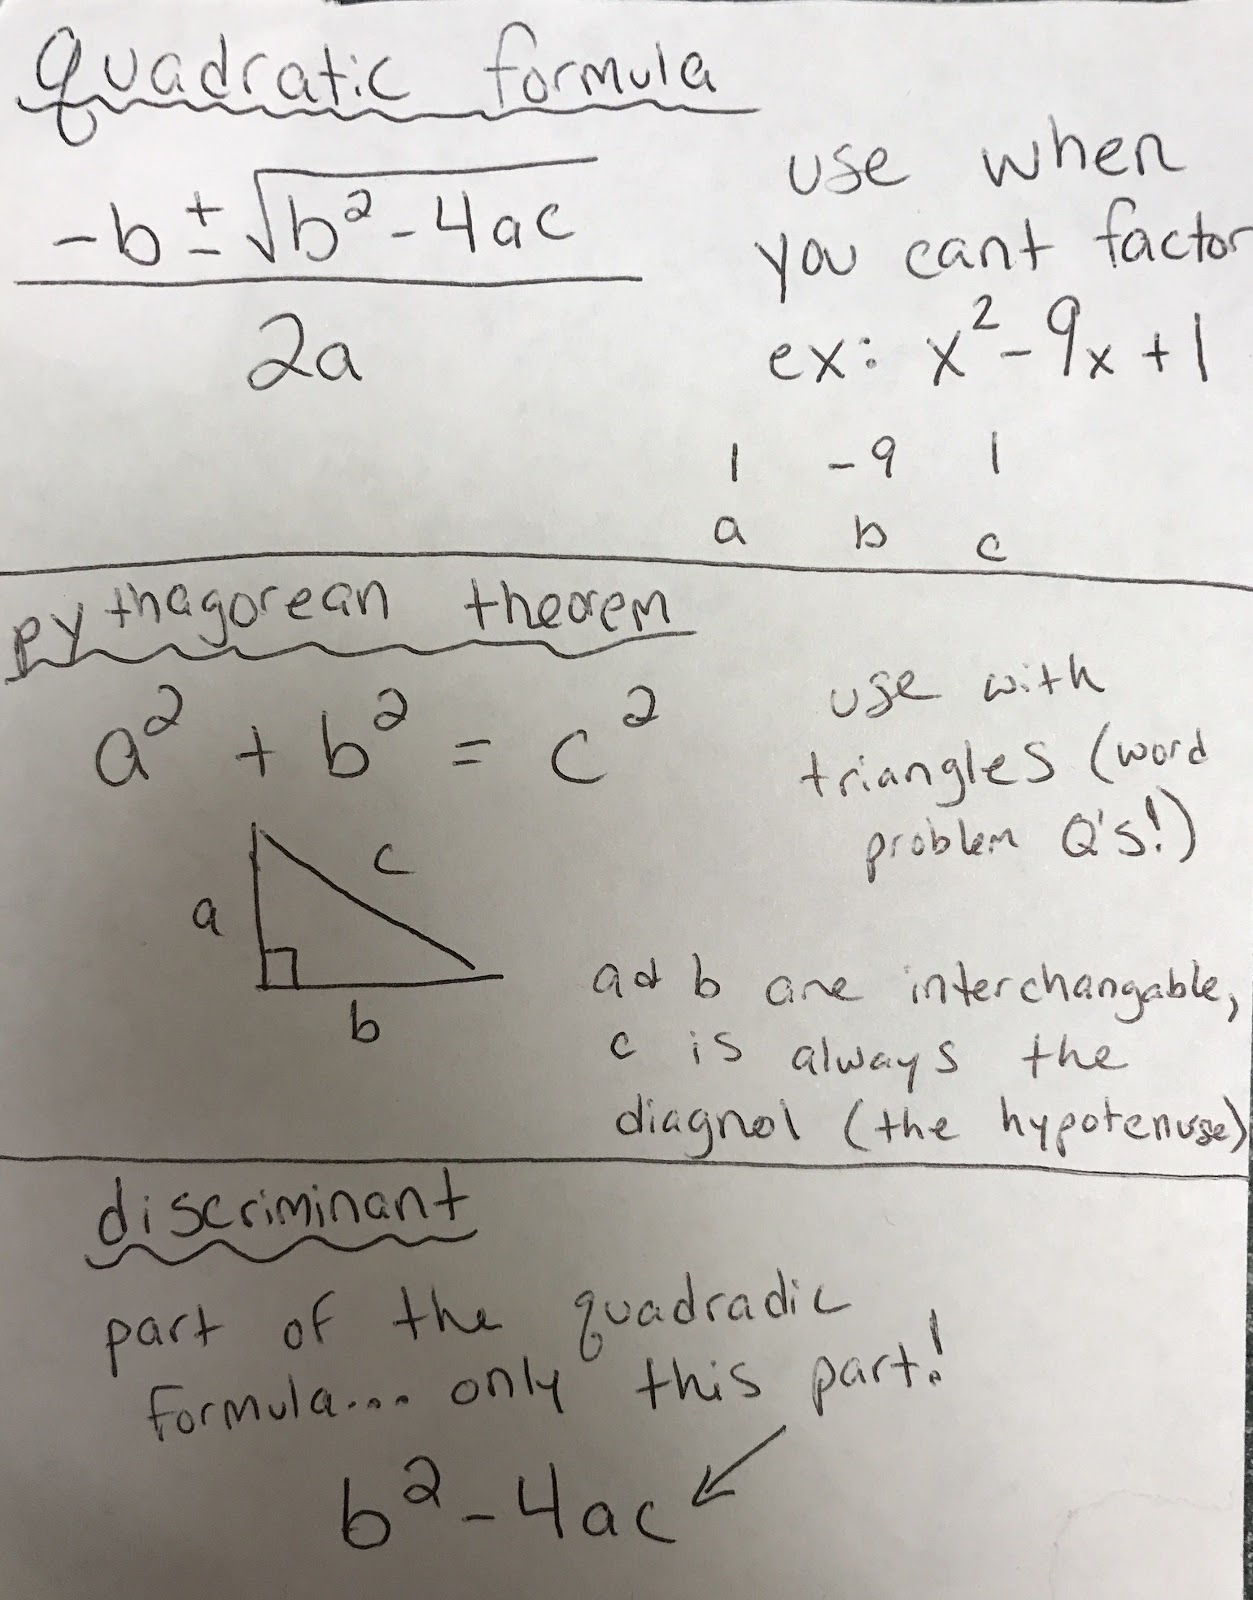 quadratic formula
-b ± √b² - 4ac
2a
use when
you cant factor
ex: x² - 9x + 1
1 -9 1
a b c
pythagorean theorem
a² + b² = c²
use with
triangles (word
problem Q's!)
a
c
b
a d b are interchangable,
c is always the
diagnol (the hypotenuse)
discriminant
part of the quadradic
formula... only this part!
b² - 4ac